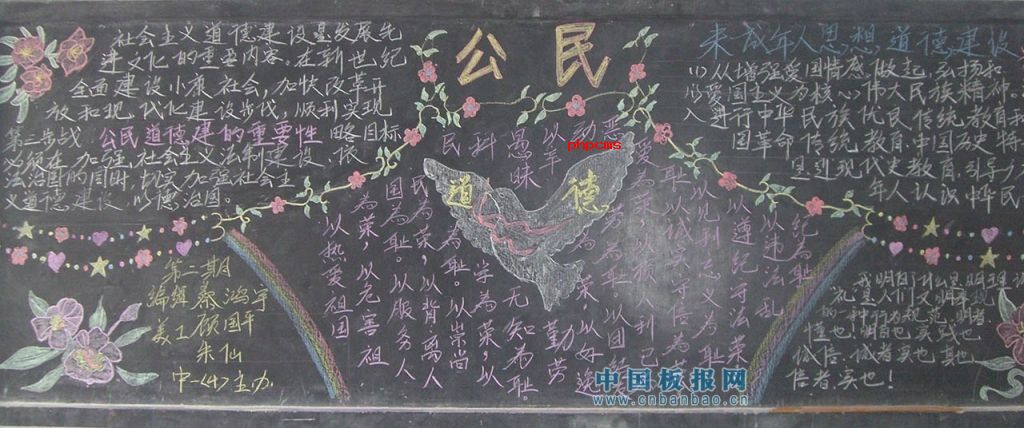 公民
道德
社会主义道德建设是发展先
进文化的重要内容。在新世纪
全面建设小康社会,加快改革开
放和现代化建设步伐,顺利实现
第三步战 略目标
公民道德建的重要性
必须在加强社会主义法制建设、依
法治国的同时,切实加强社会主
义道德建设,以德治国。
第二期
编辑 秦鸿宇
美工 顾国平
朱仙
中一〈4〉主办
以热爱祖国
为荣,以危害祖
国为耻。以服务人
民为荣,以背离人
民为耻。以崇尚
科学为荣,以
愚昧无知为耻。
以辛勤劳
动为荣,以好逸
恶劳为耻。以团结
爱
以诚实守信为荣
以见利忘义为耻
以遵纪守法荣
以违法乱
纪为耻
未成年人思想道德建设
(1)从增强爱国情感做起,弘扬和
以爱国主义为核心伟大民族精神。
入进行中华民族优民传统教育和
中国革命传统教育,中国历史特
具到现代史教育,引导
年人认识中华民
诚信,诚者,实也!其他
信者,实也!
phpcms
中国板报网
www.cnbanbao.cn